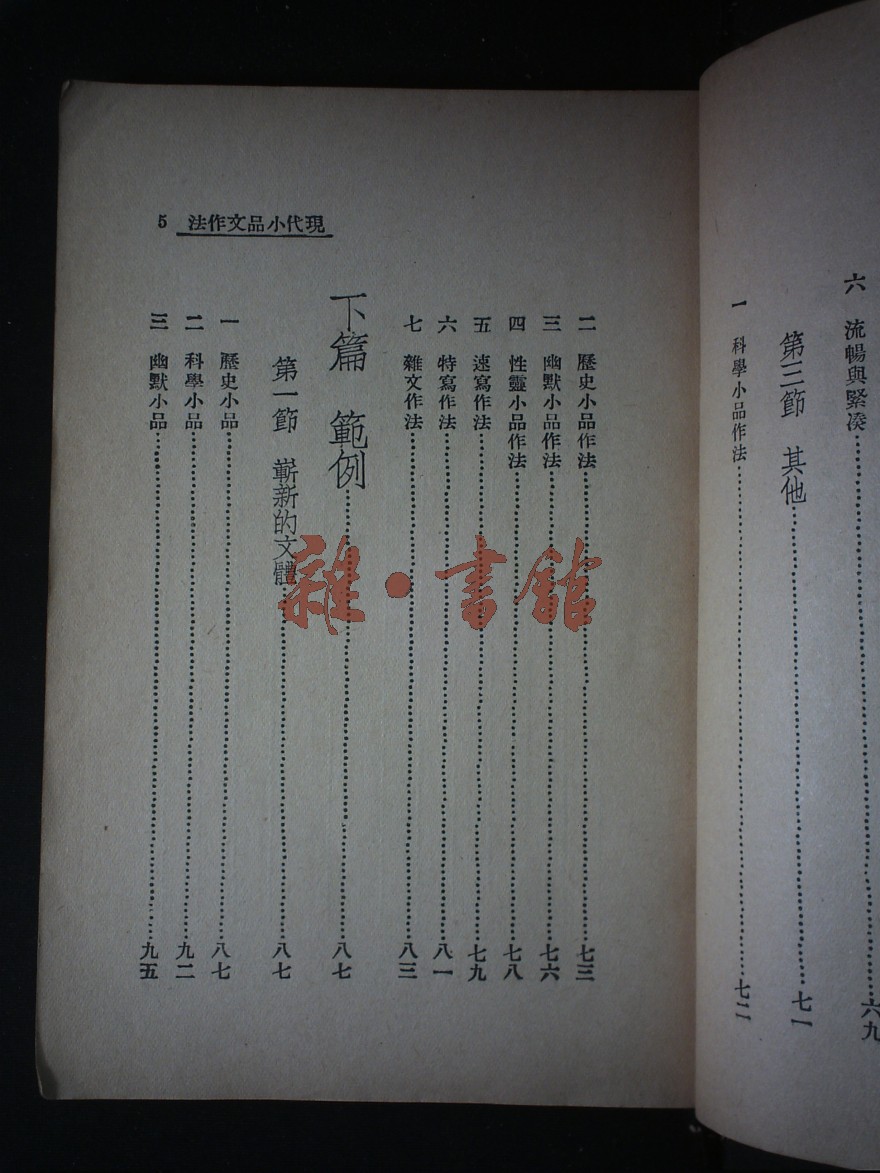 六　流暢與緊湊……六九
第三節　其他……七一
一　科學小品作法……七二
現代小品文作法　5
二　歷史小品作法……七三
三　幽默小品作法……七六
四　性靈小品作法……七八
五　速寫作法……七九
六　特寫作法……八一
七　雜文作法……八三
下篇　範例……八七
第一節　嶄新的文體……八七
一　歷史小品……八七
二　科學小品……九二
三　幽默小品……九五
雜·書館